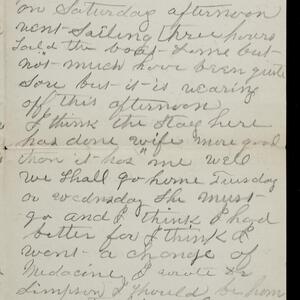 on Saturday afternoon
went Sailing three hours
Saild the boat Some but
not much have been quite
Sore but it is wearing
off this afternoon
I think the Stay here
has done wife more good
than it has me well
we Shall go home Tuesday
or Wednesday She must
go and I think I had
better for I think I
want a change of
Medacine I wrote Dr
Simpson I Should be hom